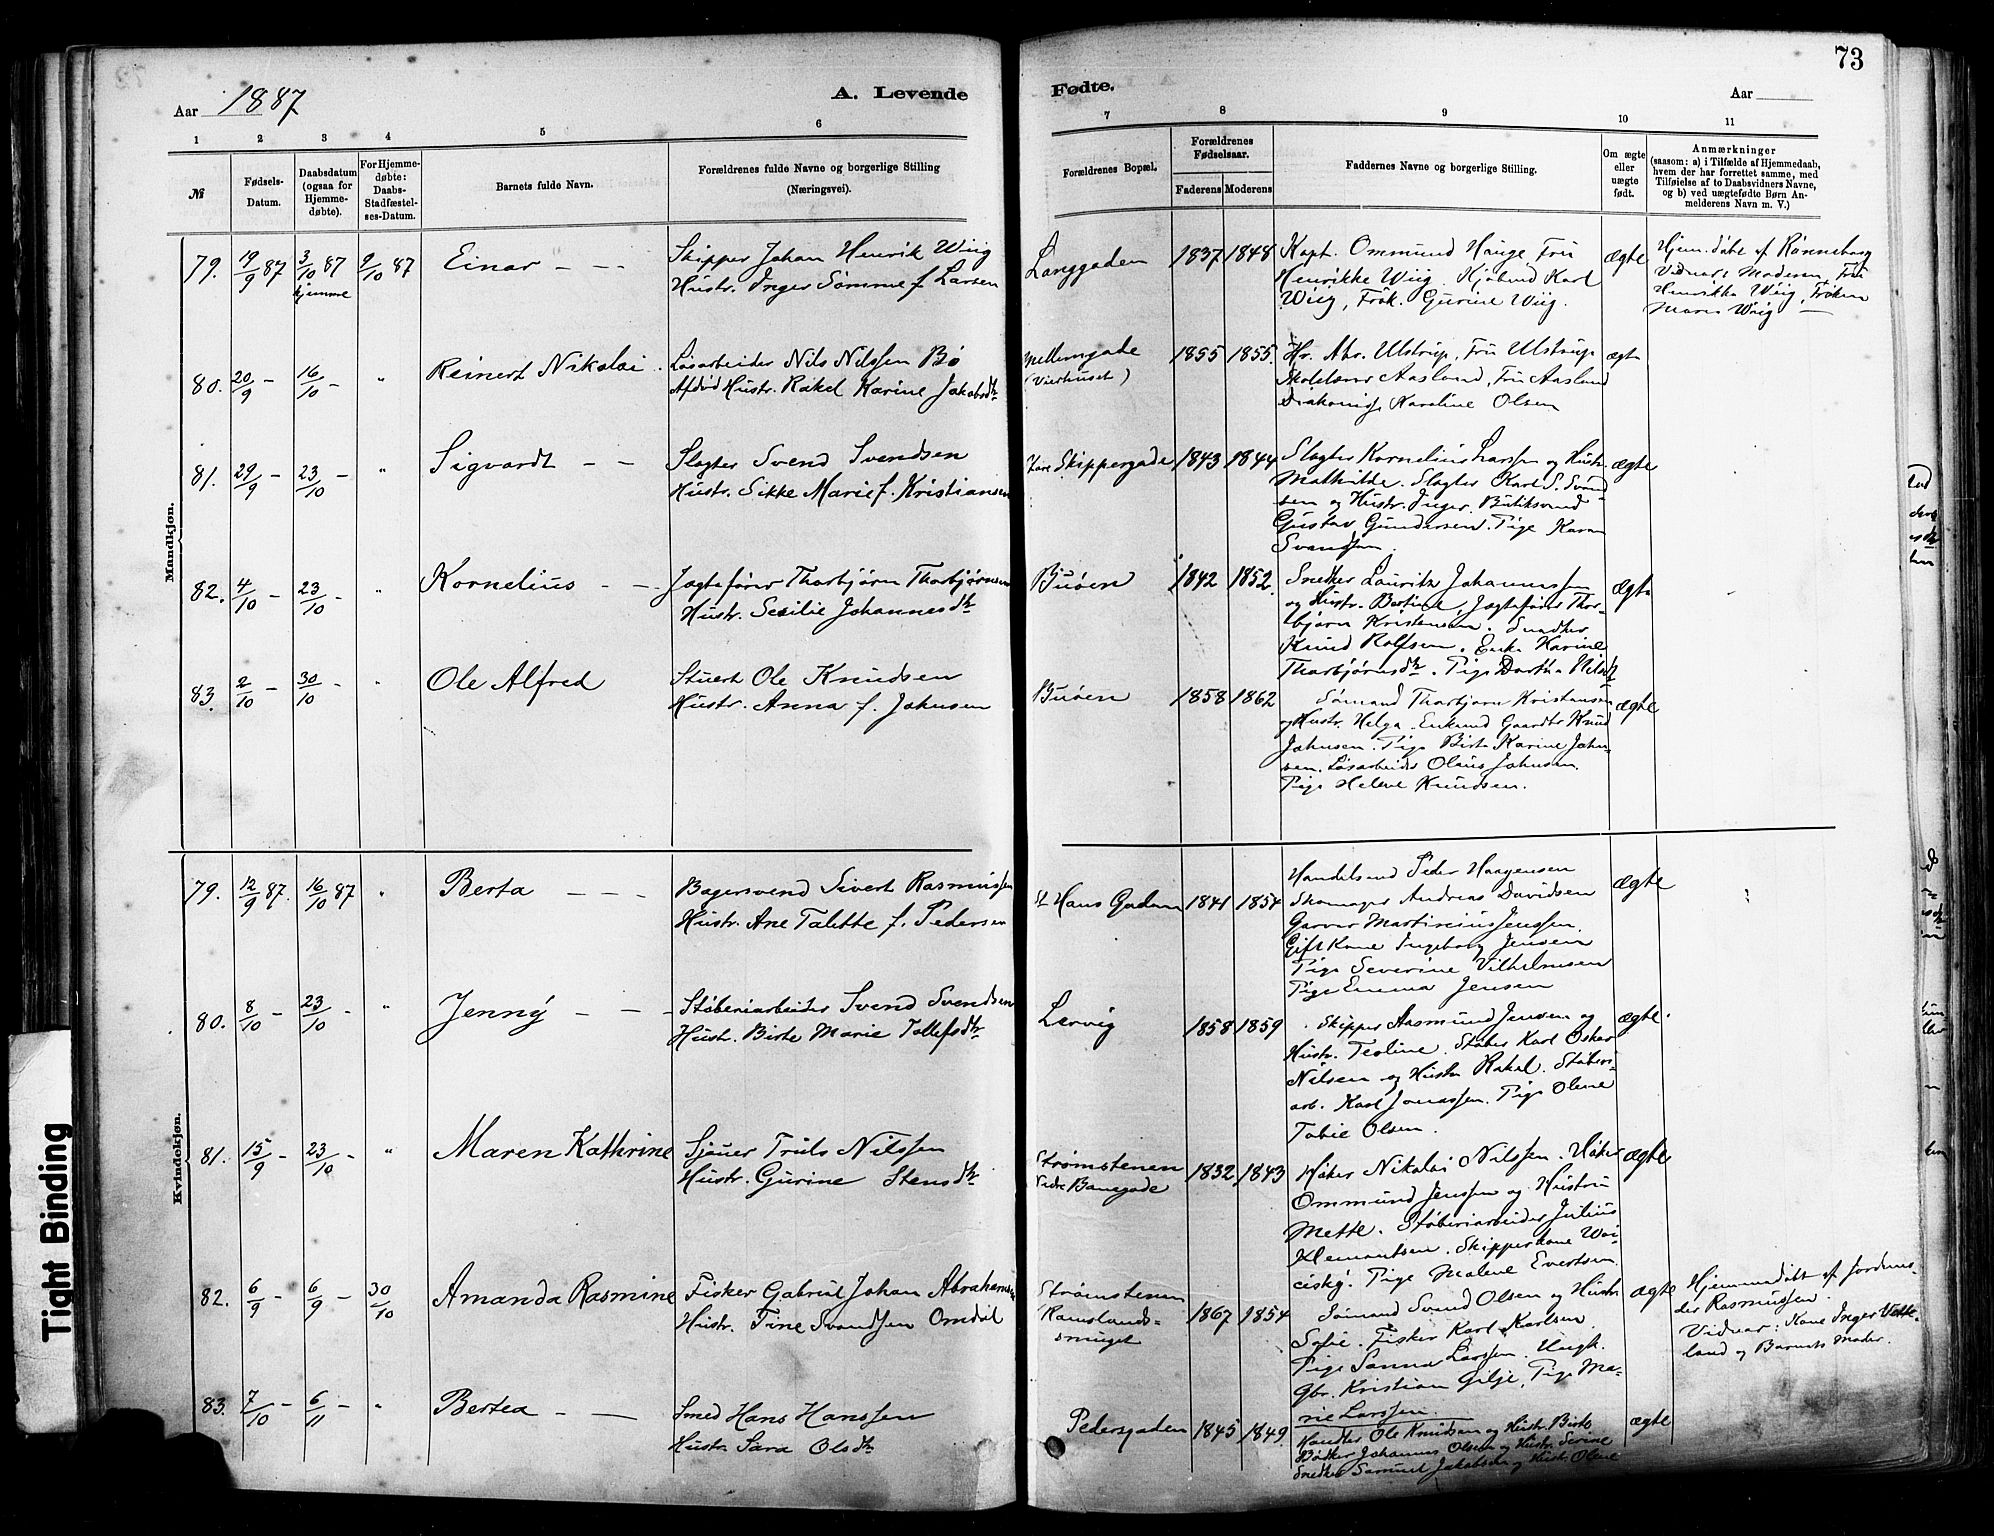 73
Aar 1887
A. Levende
Fødte.
Aar
1 2 3 4 5 6 7 8 9 10 11
№
Fødsels-
Datum.
Daabsdatum
(ogsaa for
Hjemme-
døbte).
For Hjemme-
døbte:
Daabs-
Stadfæstel-
ses-Datum.
Barnets fulde Navn.
Forældrenes fulde Navne og borgerlige Stilling
(Næringsvei).
Forældrenes Bopæl.
Forældrenes
Fødselsaar.
Faderens Moderens
Faddernes Navne og borgerlige Stilling.
Om ægte
eller
uægte
født.
Anmærkninger
(saasom: a) i Tilfælde af Hjemmedaab,
hvem der har forrettet samme, med
Tilføielse af to Daabsvidners Navne,
og b) ved uægtefødte Børn An-
melderens Navn m. V.)
Mandkjøn.
79. 19/9 87 3/10 87 hjemme 9/10 87 Einar
Skipper Johan Henrik Wiig
Hustr. Inger Sømme f. Larsen
Langgaden 1837 1848
Kapt. Ommund Hauge, Fru
Henrikke Wiig
Karl
Wiig, Frøk. Gurine Wiig.
ægte
Hjem.døbt af Rønneberg
Vidner: Moderen, Fru
Henrikke Wiig, Frøken
Maren Wiig
80. 20/9 - 16/10 - " Reinert Nikolai
Løsarbeider Nils Nilssen Bø
Afdød Hustr. Rakel Karine Jakobsdtr
Mellemgade 1855 1855.
Hr. Abr. Ulstrup, Fru Ulstrup
Aasland, Fru Aasland
Diakonisse Karoline Olsen
ægte
81. 29/9 - 23/10 - " Sigvardt
Slagter Svend Svendsen
Hustr. Sikke Marie f. Kristiansen
Skippergade 1843 1844
Slagter Kornelius Larssen og Hustr.
Mathilde. Slagter Karl S. Svend-
sen og Hustr. Inger.
Gustav Gundersen. Pige Karen
Svendsen.
ægte
82. 4/10 - 23/10 - " Kornelius
Jagtefører Thorbjørn Thorbjørnsen
Hustr. Sesilie Johannesdtr
Buøen 1842 1852.
Snedker Lauritz Johannessen
og Hustr. Bertine, Jagtefører Thor-
bjørn Kristensen. Snedker
Knud Rolfsen. Enke Karine
Thorbjørnsdtr. Pige Dorthea Nilsdtr
ægte
83. 2/10 - 30/10 - " Ole Alfred
Stuert Ole Knudsen
Hustr. Anna f. Johnsen
Buøen 1858 1862
Sømand Thorbjørn Kristensen
og Hustr. Helga.
Johnsen. Pige Birte Karine John-
sen. Løsarbeider Olaus Johnsen.
Pige Helene Knudsen.
ægte
Kvindekjøn.
79. 12/9 87. 16/10 87 " Berta
Bagersvend Sivert Rasmussen
Hustr. Ane Talette f. Pedersen
St Hans Gaden 1841 1854
Handelsmd Peder Haagensen
Skomager Andreas Davidsen
Garver Martinius Jenssen.
Gift Kone Ingeborg Jensen
Pige Severine Vilhelmsen
Pige Emma Jensen
ægte
80. 8/10 - 23/10 - " Jenny
Støberiarbeider Svend Svendsen
Hustr. Birte Marie Tollefsdtr
Lervig 1858 1859
Skipper Aasmund Jensen og
Hustr. Teoline. Støber Karl Oskar
Nilsen og Hustr. Rakel. Støberi-
arb. Karl Jonassen. Pige Olene
Tobie Olsen.
ægte.
81. 15/9 - 23/10 - " Maren Kathrine
Sjouer Truls Nilssen
Hustr. Gurine Stensdtr
Strømstenen
Banegade 1832 1843
Høker Nikolai Nilssen. Høker
Ommund Jenssen og Hustru
Mette. Støberiarbeider Julius
Klementsen. Skipperkone
Pige Malene Evertsen
ægte
82. 6/9 - 6/9 - 30/10 Amanda Rasmine
Fisker Gabriel Johan Abrahamsen
Hustr. Tine Svendsen Omdal
Strømstenen
smuget 1867 1854
Sømand Svend Olsen og Hustr.
Sofie. Fisker Karl Karlsen.
Pige Sanna Larssen. Ungk.
Gbr. Kristian Gilje, Pige Ma-
rie Larssen.
ægte
Hjemmedøbt af Jordemo-
der Rasmussen.
Vidner: Kone Inger
land og Barnets Moder.
83. 7/10 - 6/11 - " Bertea
Smed Hans Hanssen
Hustr. Sara Olsdtr
Pedersgaden 1845 1849.
Ole Knudsen og Hustr. Birte
Bødker Johannes Olsen og Hustr. Serine
Snedker Samuel Jakobsen og Hustr. Olene
ægte
Tight Binding